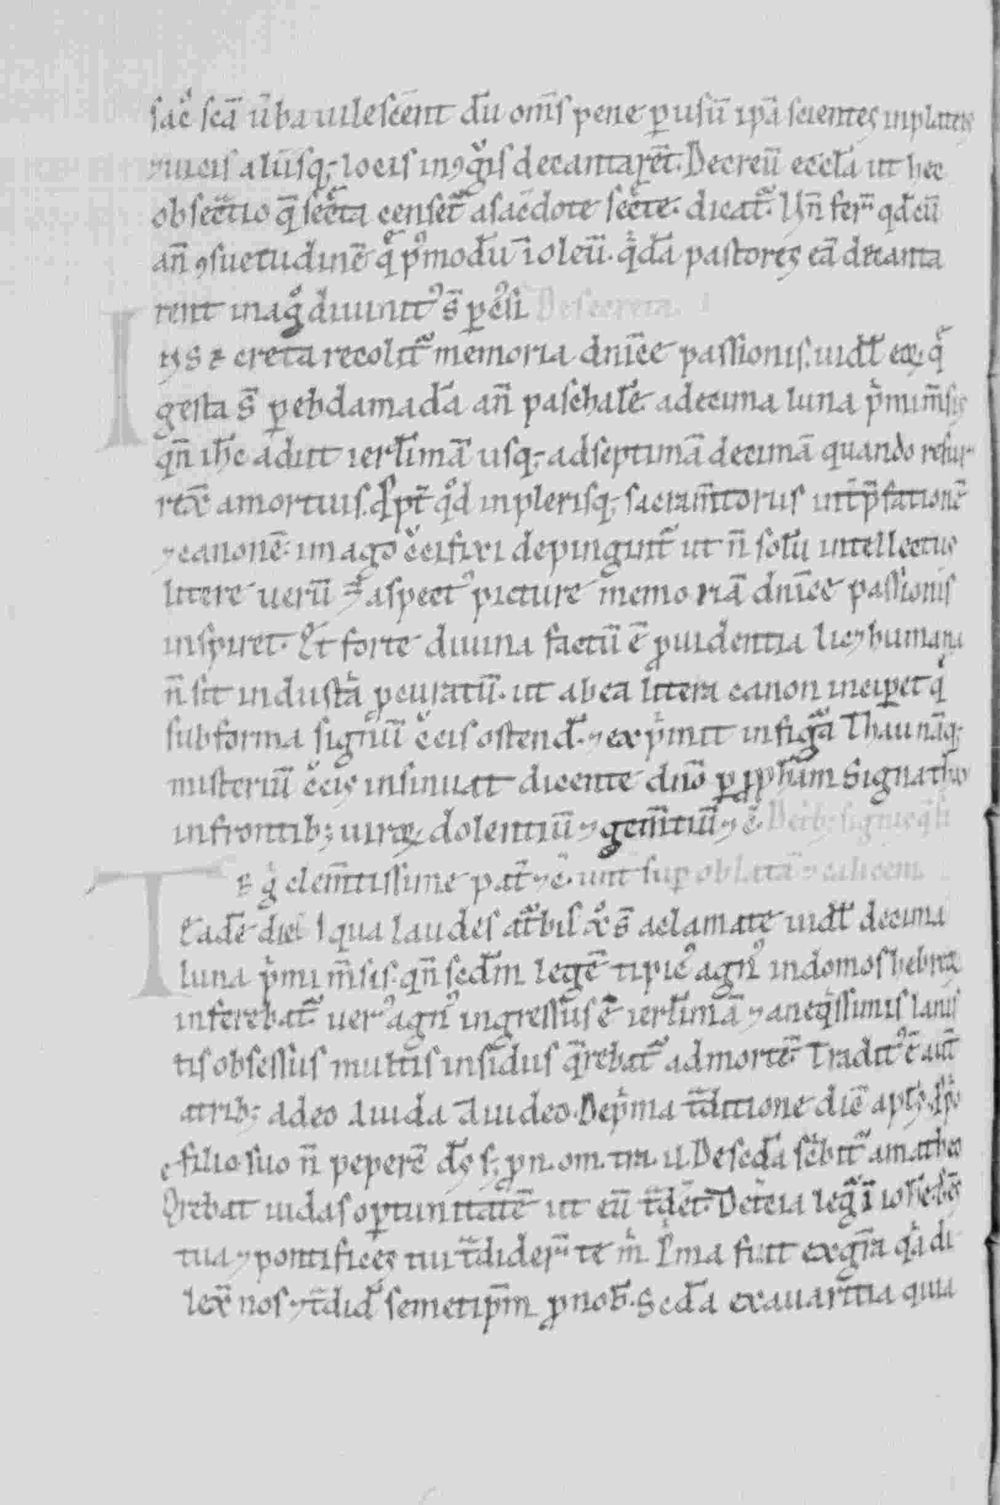 sac̄ scā ūba uilescēnt dū om̄s pene ꝑ usū ip̄ā scientes inplateis
⁊uicis aliisq; locis in ꝯg̊is decantarēt. Decreuit eccl̄a ut hec
obsec̄tio q̄ sec̄ta censet᷑ asac̄dote sec̄te dicat᷑. Un̄ fert᷑ qd̄ cū
an̄ ꝯsuetudinē q̄ p᷒modū īoleuit. q̇dā pastores eā decanta
rent in ag̊ diuinit᷒ s̄ ꝑc̄ssi De secreta.
IN Secreta recolit᷑ memoria dn̄ice passionis. uidel̄ eaꝝ q̄
gesta s̄ ꝑ ebdamadā an̄ paschalē a decima luna ṗmi m̄sis
qn̄ ih̄c adiit ierl̄imā usq; ad septimā decimā quando resur
rex̄ amortuis. ꝓpt̄ qd̊ inplerisq; sacram̄torus int̄ p̄fationē
⁊canonē imago c̄cifixi depingit᷑ ut n̄ solū intellectus
litere uerū ⁊ aspect᷒ picture memoriā dn̄ice passionis
inspiret. Et forte diuina factū ē ꝓuidentia lic⁊ humana
n̄ sit industā pcuratū. ut ab ea litera canon inciperet q̄
sub forma signū c̄cis ostend̄. ⁊ exṗmit in figā Thau nāq;
misteriū c̄cis insinuat dicente dn̄o ꝑ ꝓph̄am Signa thau
in frontib; uiroꝝ dolentiū ⁊ gem̄tiū ⁊ c̄. Deib; signis q̄ fi
TE g̊ clem̄tissime pat̄ ⁊ c̄. unt sup oblatā ⁊ calicem
Eadē diei ī qua laudes at᷑bis x̄ s̄ aclamate uidl̄ decima
luna ṗmi m̄sis. qn̄ scd̄m legē tipic᷒ agn᷒ in domos hebreoꝝ
inferebat᷑ uer᷒ agn᷒ ingressus ē ierl̄imā ⁊ aneq̇ssimis lanis
tis obsessus multis insidiis q̄rebat᷑ ad mortē Tradit᷒ ē aut̄
a trib; a deo a iuda a iudeo. De ṗma t̄ditione diē apl̄s. ꝓṗo
filio suo n̄ pepercē ds̄ s; ꝓ n. om. tra. il. De scd̄a sc̄bit᷑ in matheo
Q̄rebat iudas oꝑtunitatē ut eū t̄dēt. De t̄cia leg̊ī ioh̄e
tua ⁊ pontifices tui t̄dider̄ te m̄. P̄ma fuit ex g̊ra q̇a di
lex̄ nos ⁊ t̄did̄ semetip̄m ꝓ nob̄. Scd̄a ex auaritia quia